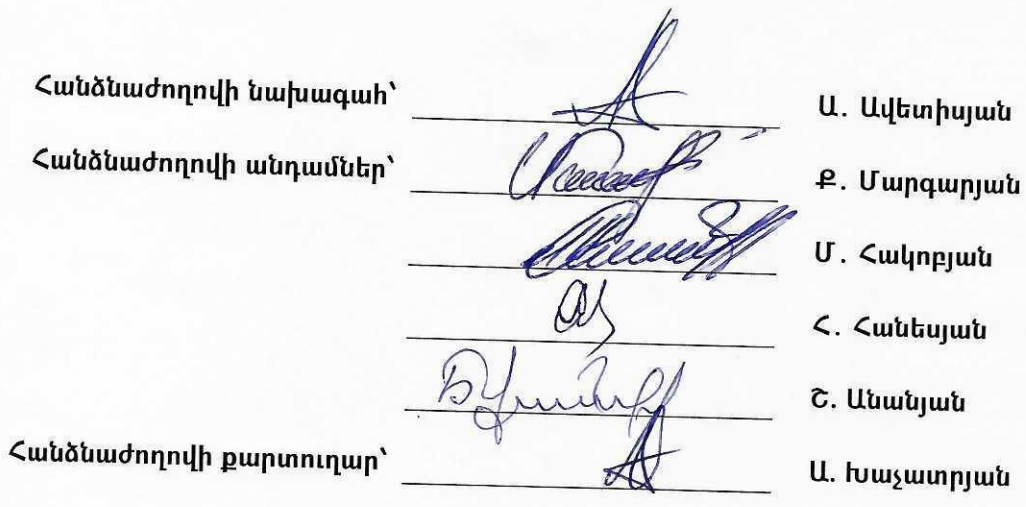 Հանձնաժողովի նախագահ՝ Ա. Ավետիսյան
Հանձնաժողովի անդամներ՝ Ք. Մարգարյան
Մ. Հակոբյան
Հ. Հանեսյան
Շ. Անանյան
Հանձնաժողովի քարտուղար՝ Ա. Խաչատրյան